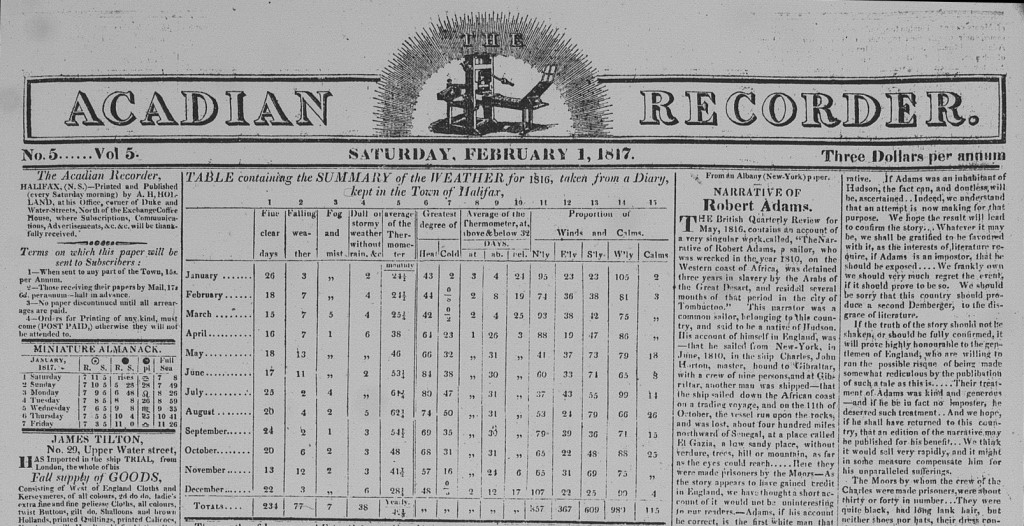 THE
ACADIAN RECORDER.
No. 5......Vol 5.
SATURDAY, FEBRUARY 1, 1817.
Three Dollars per annum
The Acadian Recorder,
HALIFAX, (N. S.)—Printed and Published
(every Saturday morning) by A. H. HOL-
LAND, at his Office, corner of Duke and
Water-Streets, North of the Exchange Coffee
House, where Subscriptions, Communica-
tions, Advertisements, &c. &c. will be thank-
fully received.
Terms on which this paper will be
sent to Subscribers:
1—When sent to any part of the Town, 15s.
per Annum.
2—Those receiving their papers by Mail, 17s
6d. per annum—half in advance.
3—No paper discontinued until all arrear-
ages are paid.
4—Orders for Printing of any kind, must
come (POST PAID,) otherwise they will not
be attended to.
MINIATURE ALMANACK.
JANUARY, 1817.
R. S. R. S. pl Full Sea
1 Saturday
2 Sunday
3 Monday
4 Tuesday
5 Wednesday
6 Thursday
7 Friday
JAMES TILTON,
No. 29, Upper Water street,
HAS Imported in the ship TRIAL, from
London, the whole of his
Fall supply of GOODS,
Consisting of West of England Cloths and
Kerseymeres, of all colours, 2d do do, ladie's
extra fine and fine pelisse Cloths, all colours,
twist Buttons, gilt do, Shalloons and brown
Hollands, printed Quiltings, printed Calicoes,
TABLE containing the SUMMARY of the WEATHER for 1816, taken from a Diary,
kept in the Town of Halifax,
1 2 3 4 5 6 7 8 9 10 11 12 13 14 15
Fine clear days
Falling weather
Fog and mist
Dull or stormy weather without rain, &c
average of the Thermometer
monthly
Greatest degree of
Heat Cold
Average of the Thermometer, at, above & below 32
DAYS.
at ab.
Proportion of
Winds and Calms.
N'ly E'ly S'ly W'ly Calms
January 26 3 „ 2 24½ 43 2 3 4 24 95 23 23 105 2
February 18 7 „ 4 44 2 8 19 74 36 38 81 3
March 15 7 5 4 42 2 4 25 93 38 42 75 „
April 16 7 1 6 38 64 23 1 26 3 88 19 47 86 „
May 18 13 „ „ 46 66 32 „ 31 „ 41 37 73 79 18
June 17 11 „ 2 84 38 „ 30 „ 60 33 74 65 8
July 25 2 4 „ 80 47 „ 31 „ 37 43 55 99 14
August 20 4 2 5 74 50 „ 31 „ 53 24 79 66 26
September 24 2 1 3 69 35 „ 30 „ 79 39 36 71 15
October 20 6 2 3 48 68 31 „ 31 „ 65 22 48 88 25
November 13 12 2 3 57 16 „ 24 6 65 31 69 75 „
December 22 3 „ 6 48 2 12 17 107 22 25 90 4
TOTALS 234 77 7 38 Yearly 857 367 609 980 115
From an Albany (New-York) paper.
NARRATIVE OF
Robert Adams.
THE British Quarterly Review for
May, 1816, contains an account of
a very singular work, called, "The Nar-
rative of Robert Adams, a sailor, who
was wrecked in the year 1810, on the
Western coast of Africa, was detained
three years in slavery by the Arabs of
the Great Desart, and resided several
months of that period in the city of
Tombuctoo." This narrative was a
common sailor, belonging to this coun-
try, and said to be a native of Hudson.
His account of himself in England, was
—that he sailed from New-York, in
June, 1810, in the ship Charles, John
Horton, master, bound to Gibraltar,
with a crew of nine persons, and at Gib-
raltar, another man was shipped—that
the ship sailed down the African coast
on a trading voyage, and on the 11th of
October, the vessel run upon the rocks,
and was lost, about four hundred miles
northward of Senegal, at a place called
El Gazia, a low sandy place, without
verdure, trees, hill or mountain, as far
as the eyes could reach.....Here they
were made prisoners by the Moors—As
the story appears to have gained credit
in England, we have thought a short ac-
count of it would not be uninteresting
to our readers.—Adams, if his account
be correct, is the first white man that
rative. If Adams was an inhabitant of
Hudson, the fact can, and doubtless, will
be, ascertained.. Indeed, we understand
that an attempt is now making for that
purpose. We hope the result will lead
to confirm the story... Whatever it may
be, we shall be gratified to be favoured
with it, as the interests of literature re-
quire, if Adams is an impostor, that he
should be exposed....We frankly own
we should very much regret the event,
if it should prove to be so. We should
be sorry that this country should pro-
duce a second Damberger, to the dis-
grace of literature.
If the truth of the story should not be
shaken, or should be fully confirmed, it
will prove highly honourable to the gen-
tlemen of England, who are willing to
run the possible risque of being made
somewhat rediculous by the publication
of such a tale as this.....Their treat-
ment of Adams was kind and generous
—and if he be in fact no impostor, he
deserved such treatment.. And we hope,
if he shall have returned to this coun-
try, that an edition of the narrative may
be published for his benefit... We think
it would sell very rapidly, and it might
in some measure compensate him for
his unparalleled sufferings.
The Moors by whom the crew of the
Charles were made prisoners, were about
thirty or forty in number... They were
quite black, had long lank hair, but
neither shoes nor hats, their dress con-